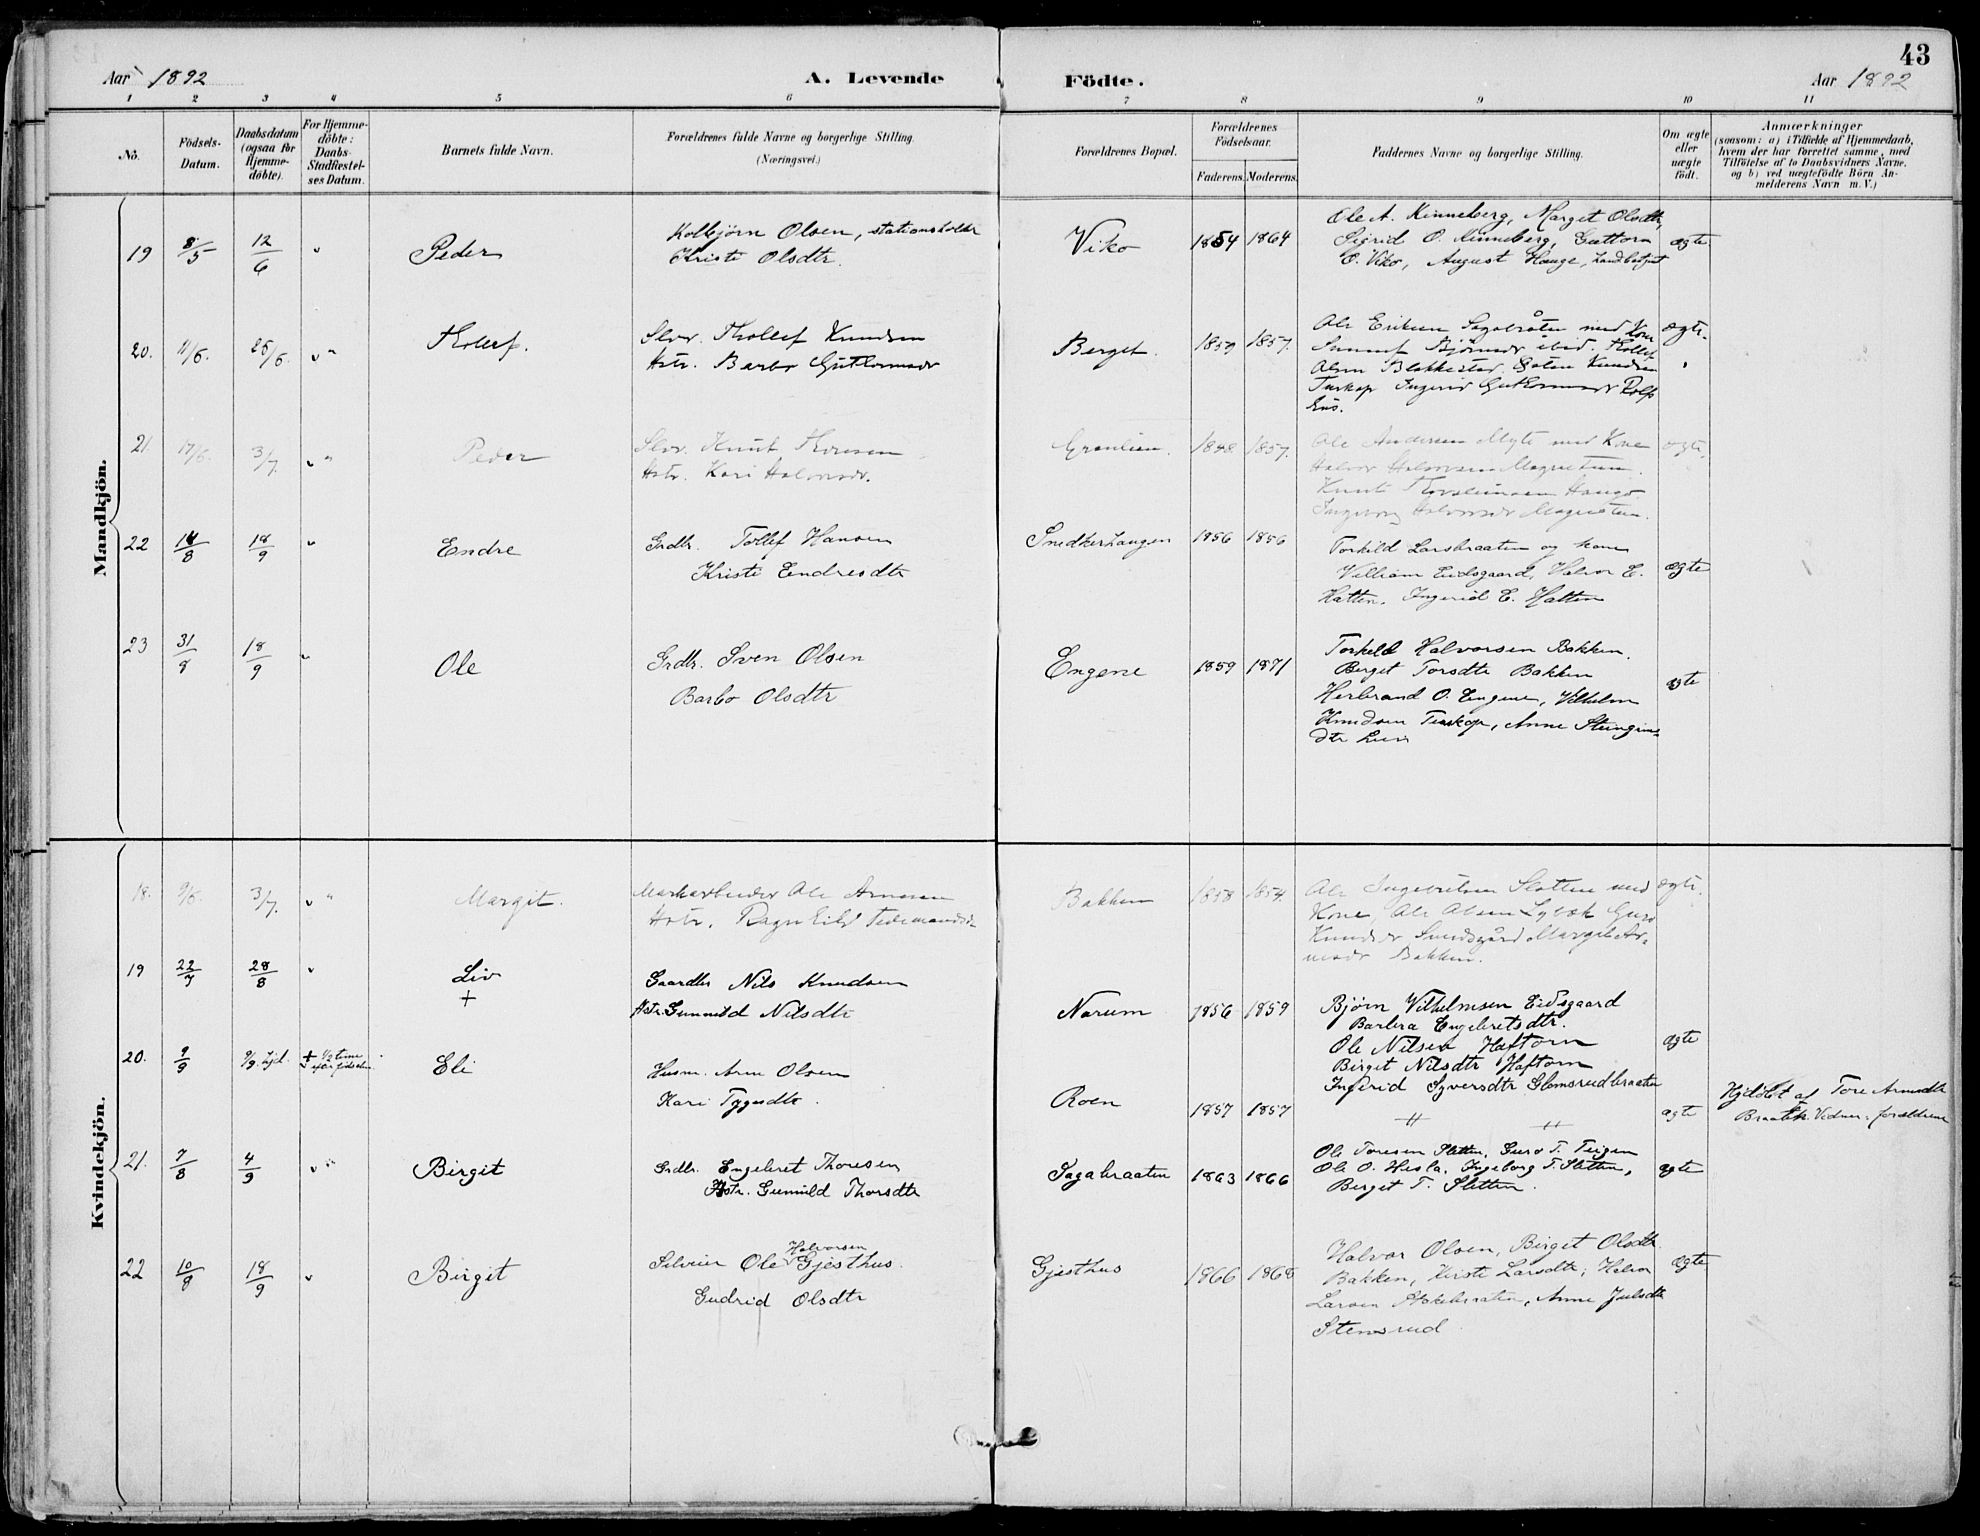 43
Aar 1892
A. Levende
Födte.
Aar 1892
1 2 3 4 5 6 7 8 9 10 11
No.
Födsels-
Datum.
Daabsdatum
(ogsaa for
Hjemme-
döbte).
For Hjemme-
döbte:
Daabs-
Stadfæstel-
ses Datum.
Barnets fulde Navn.
Forældrenes fulde Navne og borgerlige Stilling.
(Næringsvei.)
Forældrenes Bopæl.
Forældrenes
Födselsaar.
Faderens. Moderens.
Faddernes Navne og borgerlige Stilling.
Om ægte
eller
uægte
födt.
Anmærkninger
(saasom: a) i Tilfælde af Hjemmedaab,
hvem der har forrettet samme, med
Tilföielse af to Daabsvidners Navne,
og b) ved uægtefödte Börn An-
melderens Navn m. V.)
Mandkjön.
19 8/5 12/6 "
Peder
Kolbjörn Olsen, stationsholder
Kristi Olsdtr.
Viko
1854 1864
Ole A. Kinneberg, Marget Olsdtr,
Sigrid O. Kinneberg, Guttorm
O. Viko, August Hauge,
ægte
20. 11/6. 26/6. "
Tholleif.
Slvr. Thollef Knudsen
Hstr. Barbo Guttormsdr
Berget.
1859 1857.
Ole Eriksen Sagabråten med Kone
Bjørnsdr ibid. Thollef
Olsen Blakkestad,
Knudsen
Tuskop Ingerid Guttormsdr Rolfs
hus.
ægte.
21. 17/6. 3/7. "
Peder
Slvr. Knut Thoresen
Hstr. Kari Halvorsdr.
Grønlien.
1848 1857.
Ole Andersen Myte med Kone
Halvor Halvorsen Magnetun.
Knut Thorsteinsen Haugo
Ingeborg Halvorsdr Magnetun.
ægte.
22 14/8 18/9 "
Endre
Grdbr. Tollef Hansen
Kristi Endresdtr
Snedkerhaugen
1856 1856
Torkild Larsbraaten og kone
Villiam Eidsgaard, Halvor E.
Hatten. Ingerid E. Hatten
ægte
23 31/8 18/9 "
Ole
Grdbr. Sven Olsen
Barbo Olsdtr
Engene
1859 1871
Torkeld Halvorsen Bakken.
Berget Torsdtr Bakken
Herbrand O. Engene, Vilhelm
Knudsen Tuskop, Anne Steingrims-
dtr
ægte
Kvindekjön.
18. 9/6. 3/7. "
Margit.
Markarbeider Ole Arnesen
Hstr. Ragnhild Tidemandsdr
Bakken
1858 1854.
Ole Ingebritsen Slotten med
Kone, Ole Olsen Lybæk Guro
Knudsdr Sundsgård Margit Ar-
nesdr Bakken.
ægte.
19 22/7 28/8 "
Liv
+
Gaardbr Nils Knudsen
Hstr. Gunnild Nilsdtr
Narum
1856 1859
Bjørn Vilhelmsen Eidsgaard
Barbra Engebretsdtr.
Ole Nilsen Haftorn
Birget Nilsdtr Haftorn
Ingerid Syversdtr Glomsrudbraaten
ægte
20. 9/9 9/9 hjd. + 1/2 time
efter fødselen.
Eli
Husm. Arne Olsen
Kari Tygesdtr.
Roen
1857 1857
" "
ægte
Hjdöbt af Tore Arnesdtr
Braaten. Vidner: forældrene
21. 7/8 4/9 "
Birgit
Grdbr. Engebret Thoresen
Hstr. Gunnild Thorsdtr
Sagabraaten
1863 1866
Ole Toresen Sletten, Guro T. Teigen
Ole O. Hesla, Ingeborg T. Sletten,
Berget T. Sletten.
ægte
22 10/8 18/9 "
Birgit
Halvorsen
Selveier Ole Gjesthus.
Gudrid Olsdtr
Gjesthus
1866 1868
Halvor Olsen, Birget Olsdtr
Bakken, Kirsti Larsdtr, Halvor
Larsen Stokkebraaten, Anne Juelsdtr
Stensrud
ægte